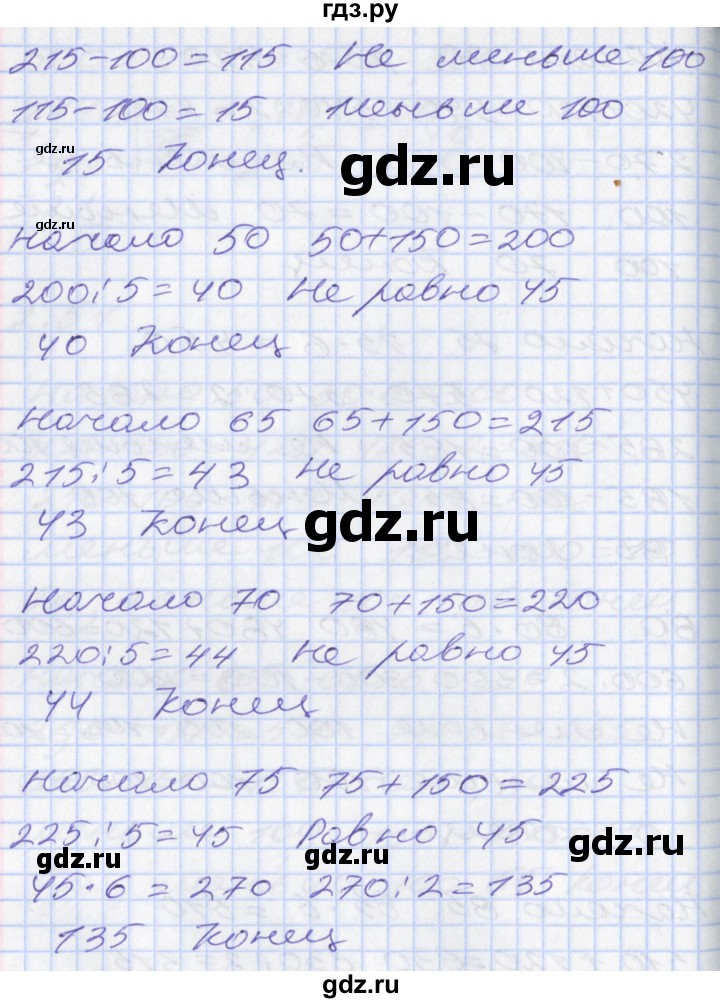 гдз.ру
215-100=115 Не меньше 100
115-100=15 Меньше 100
gdz.ru
15 Конец.
gdz.ru
gdz.ru
Начало 50 50+150=200
200:5=40 Не равно 45
40 Конец
Начало 65 65+150=215
215:5=43 Не равно 45
43 Конец
gdz.ru
Начало 70 70+150=220
220:5=44 Не равно 45
44 Конец
Начало 75 75+150=225
225:5=45 Равно 45
gdz.ru gdz.ru gdz.ru
45·6=270 270:2=135
135 Конец
gdz.ru